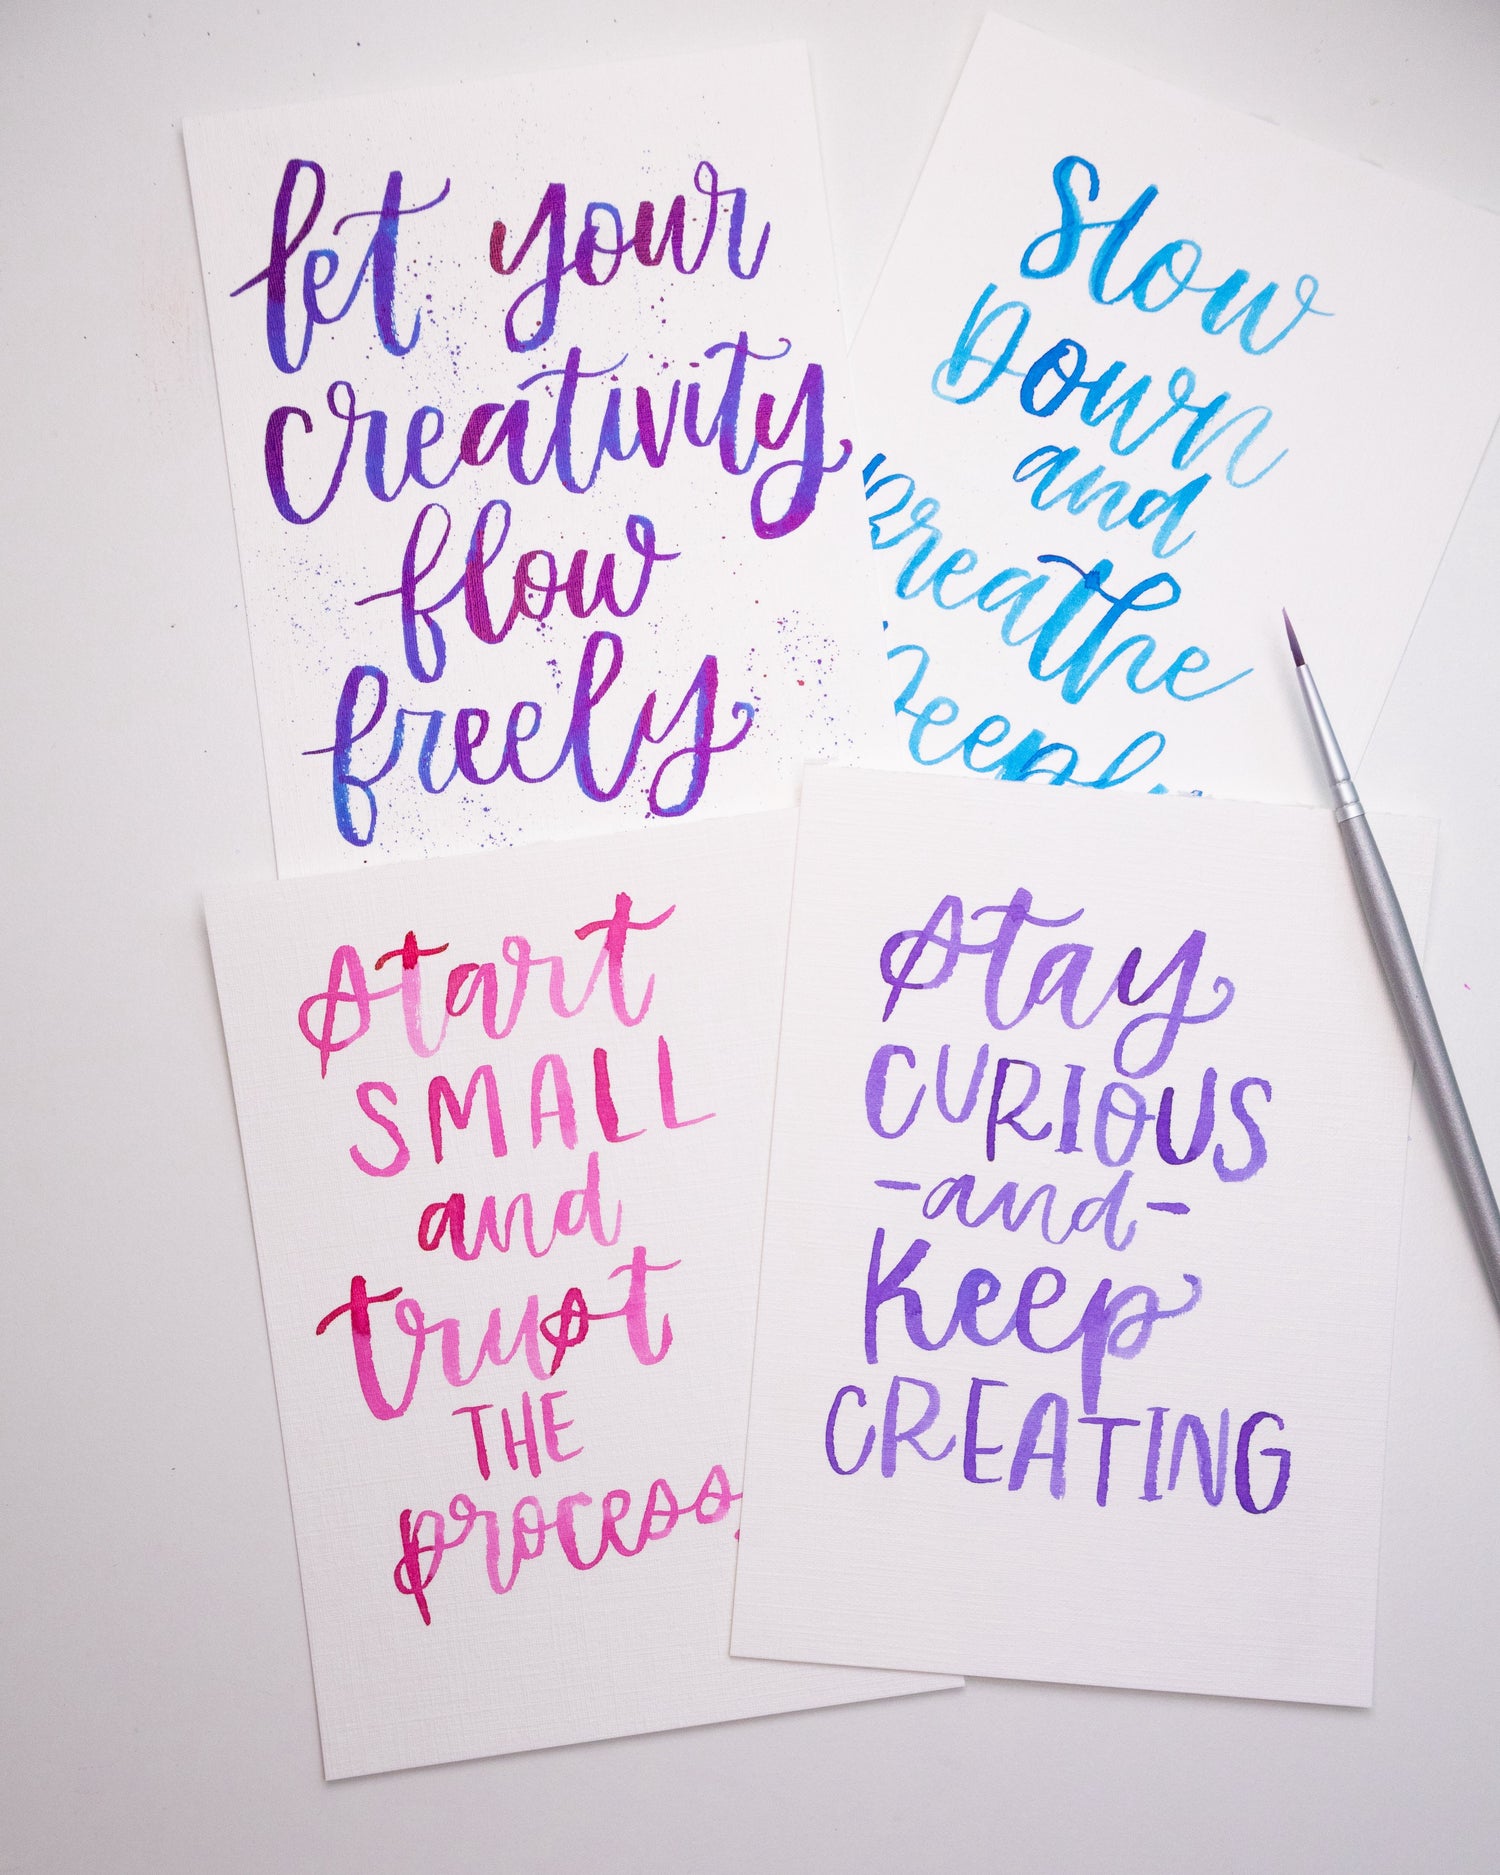 let your
creativity
flow
freely
Slow
Down
and
Breathe
Deeply
start
SMALL
and
trust
THE
process
stay
CURIOUS
-and-
Keep
CREATING